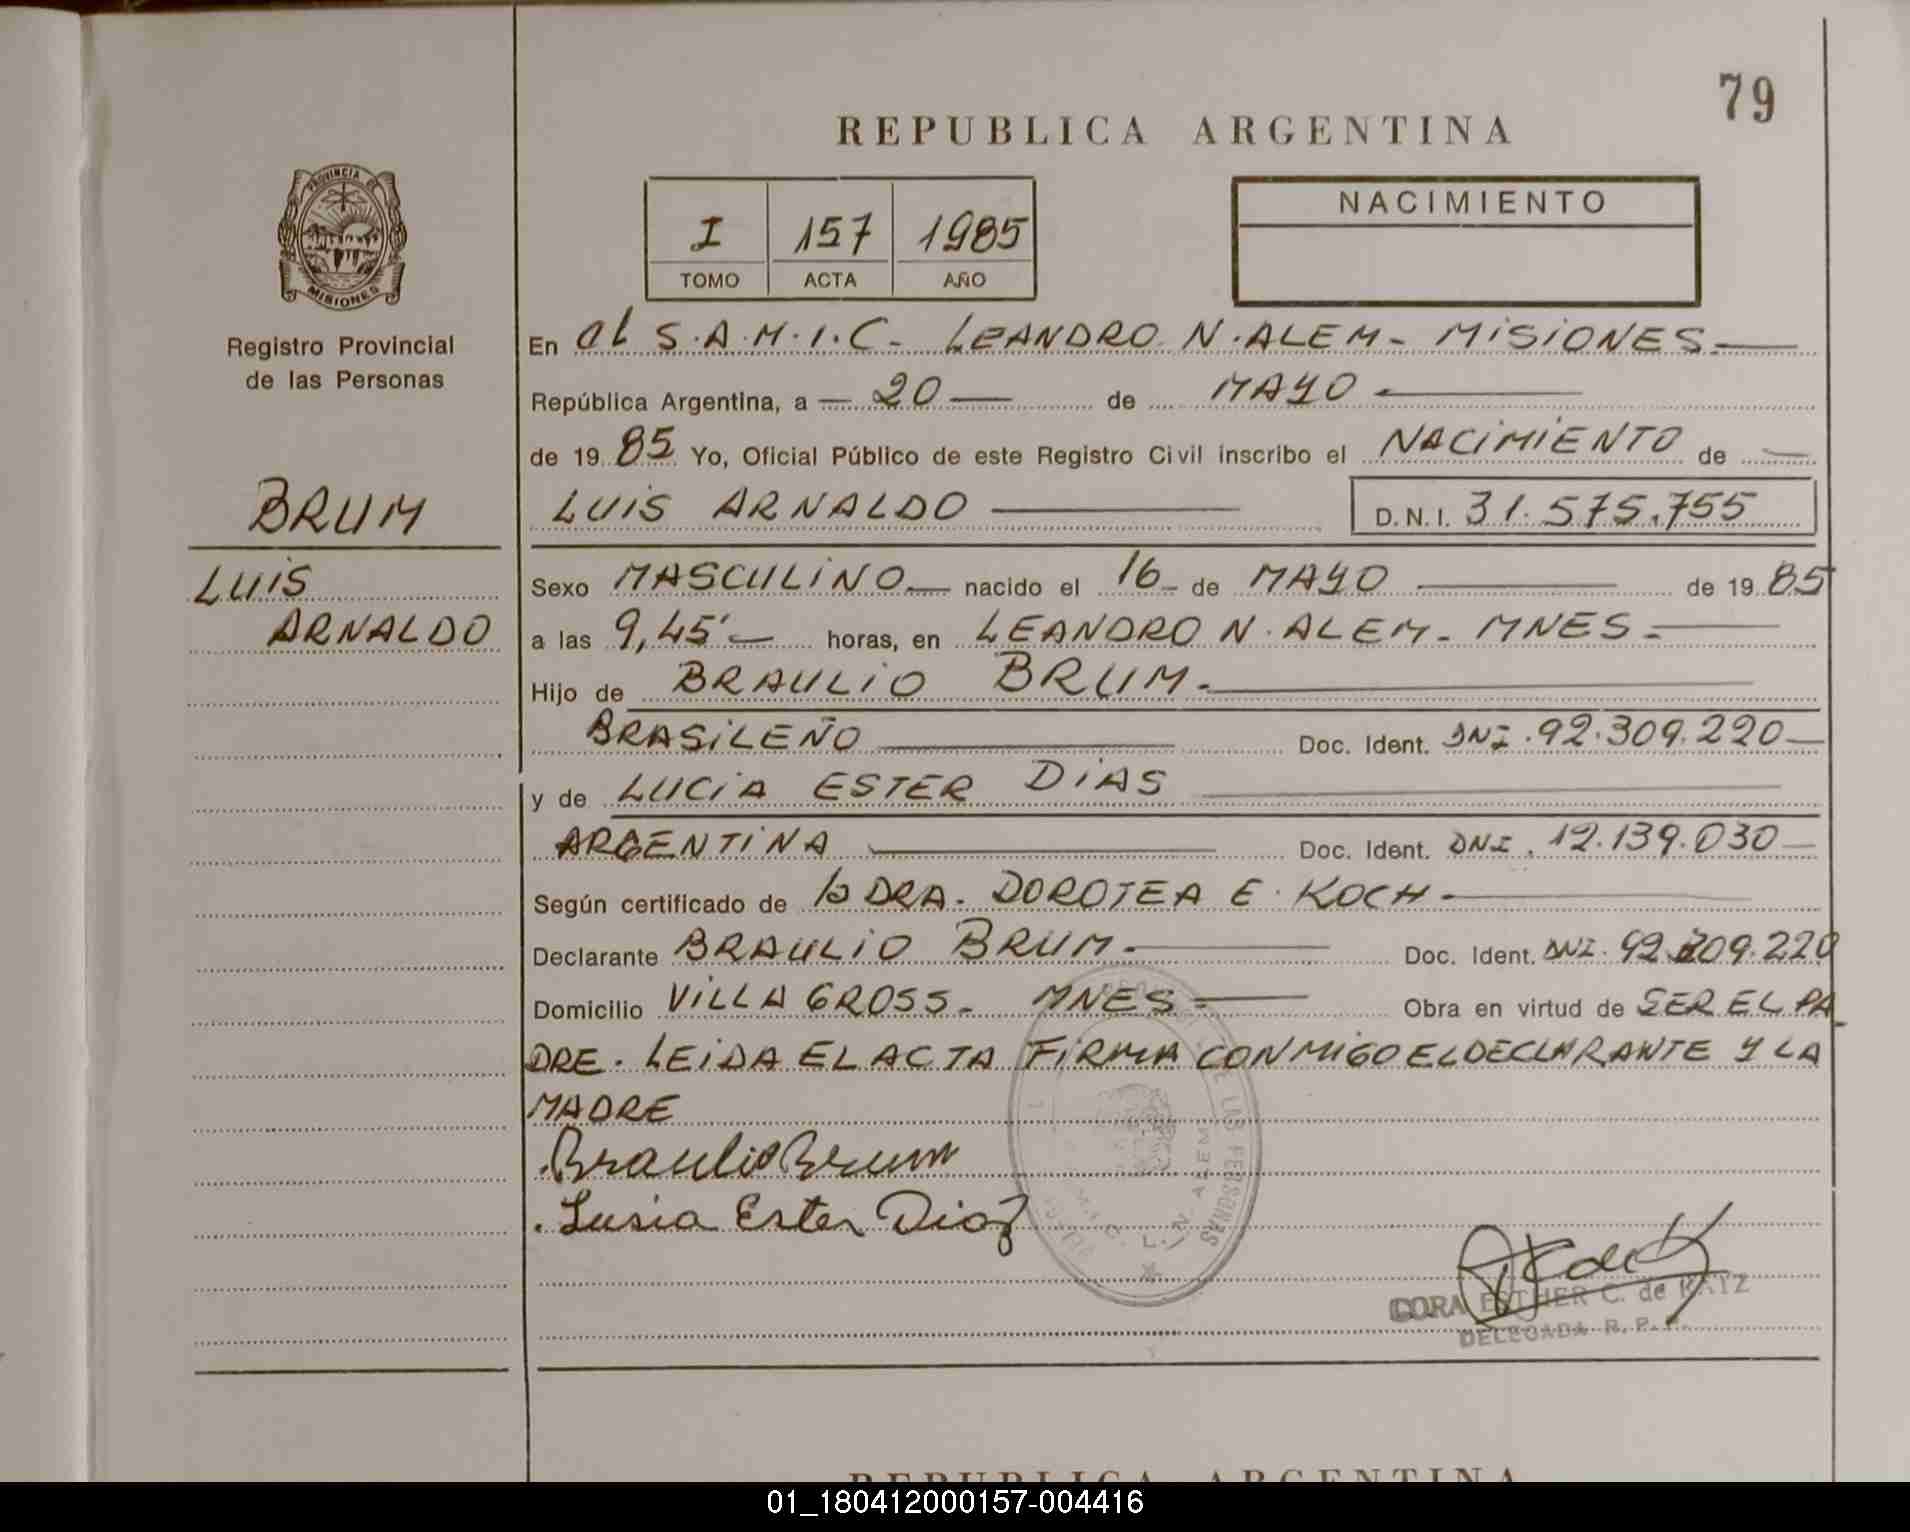 79
REPUBLICA ARGENTINA
PROVINCIA DE
MISIONES
Registro Provincial
de las Personas
BRUM
LUIS
ARNALDO
I 157 1985
TOMO ACTA AÑO
NACIMIENTO
En el S.A.M.I.C- LEANDRO N. ALEM- MISIONES-
República Argentina, a - 20 - de MAYO
de 1985 Yo, Oficial Público de este Registro Civil inscribo el NACIMIENTO de
LUIS ARNALDO D.N.I. 31.575.755
Sexo MASCULINO nacido el 16 - de MAYO de 1985
a las 9,45' horas, en LEANDRO N. ALEM- MNES-
Hijo de BRAULIO BRUM-
BRASILEÑO Doc. Ident. DNI. 92.309.220
y de LUCIA ESTER DIAS
ARGENTINA Doc. Ident. DNI. 12.139.030
Según certificado de la DRA. DOROTEA E. KOCH-
Declarante BRAULIO BRUM- Doc. Ident. DNI. 92.309.220
Domicilio VILLA GROSS- MNES- Obra en virtud de SER EL PA-
DRE. LEIDA EL ACTA FIRMA CONMIGO EL DECLARANTE Y LA
MADRE
Braulio Brum
Lusia Ester Diaz
DE LAS PERSONAS
L. N. ALEM
CORA ESTHER C. de KATZ
DELEGADA R.P.P.
REPUBLICA ARGENTINA
01_180412000157-004416